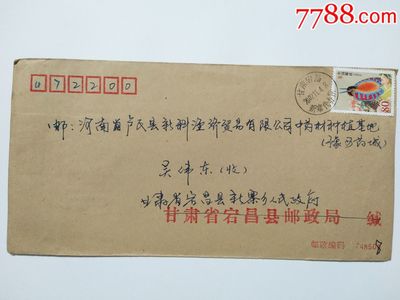 7788.com
072200
邮:河南省卢氏县新科经济贸易有限公司中药材种植基地
(豫西药城)
吴伟东(收)
甘肃省宕昌县新寨乡人民政府
甘肃省宕昌县邮政局 缄
邮政编码 748508
80